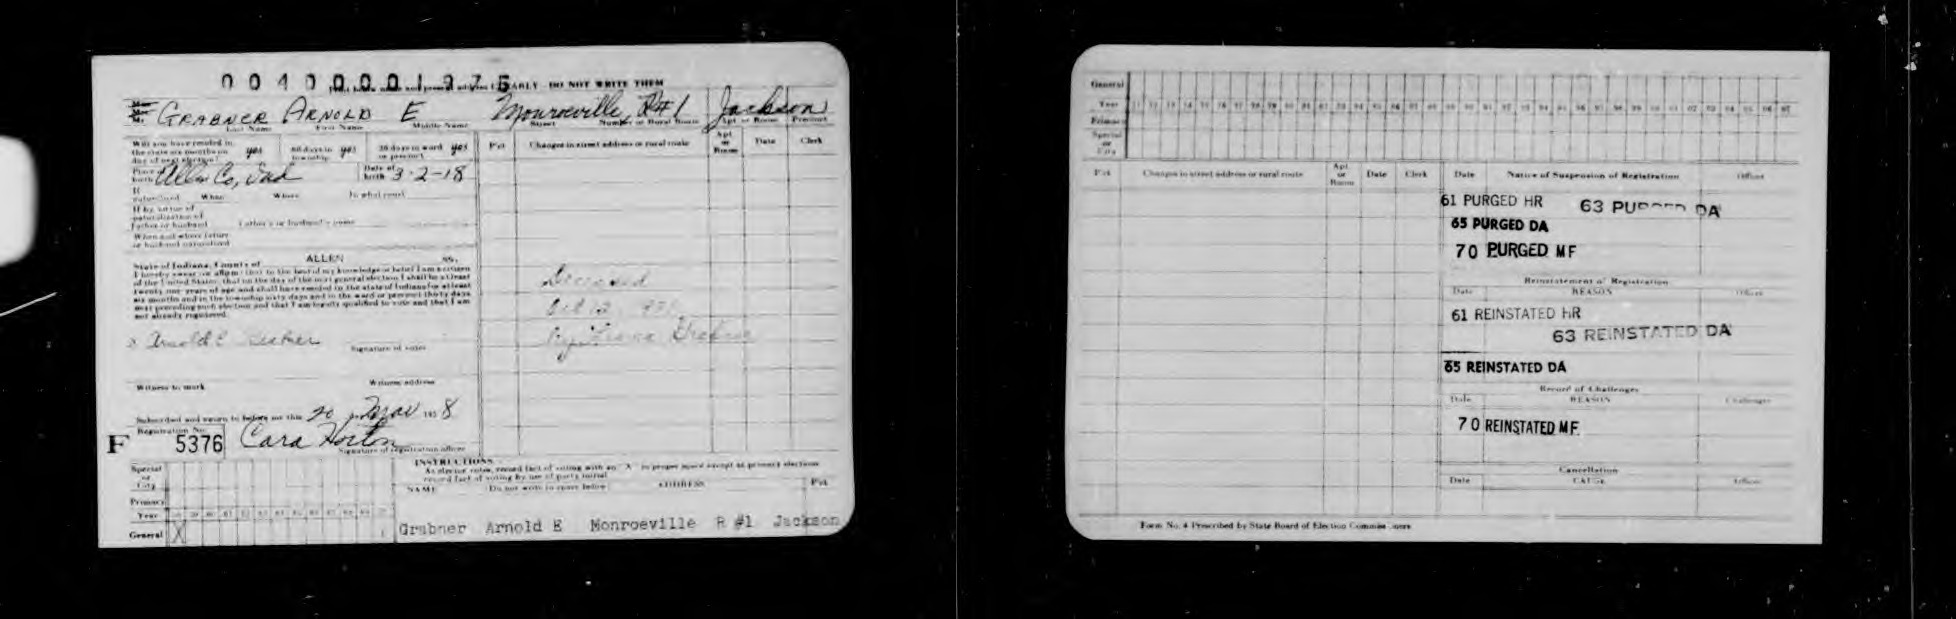 0 0 4 0 0 0 0 1 9 7 5
EARLY DO NOT WRITE THEM
GRABNER ARNOLD E Monroeville, R#1 Jackson
Last Name First Name Middle Name Street Number or Rural Route Apt or Room Precinct
Will you have resided in the state six months on day of next election? yes 60 days in township yes 30 days in ward or precinct yes
Pct Changes in street address or rural route Apt or Room Date Clerk
Place of birth Allen Co, Ind Date of birth 3-2-18
If naturalized When Where In what court
If by virtue of naturalization of father or husband Father's or husband's name
When and where father or husband naturalized
State of Indiana, County of ALLEN SS.
I hereby swear or affirm that to the best of my knowledge or belief I am a citizen
of the United States, that on the day of the next general election I shall be at least
twenty one years of age and shall have resided in the state of Indiana for at least
six months and in the township sixty days and in the ward or precinct thirty days
next preceding such election and that I am legally qualified to vote and that I am
not already registered.
Deceased
Oct 12
By
Arnold E
Signature of voter
Witness to mark Witness address
Subscribed and sworn to before me this 20 May 1958
Registration No.
F 5376 Cara Horton
Signature of registration officer
INSTRUCTIONS
As elector votes, record fact of voting with an "X" in proper space except at primary elections
record fact of voting by use of party initial
Special or City
NAME Do not write in space below ADDRESS Pct
Primary
Year
General X
Grabner Arnold E Monroeville R #1 Jackson
General
Year
Primary
Special or City
Pct Changes in street address or rural route Apt or Room Date Clerk
Date Notice of Suspension of Registration Officer
61 PURGED HR 63 PURGED DA
65 PURGED DA
70 PURGED MF
Reinstatement of Registration
Date REASON Officer
61 REINSTATED HR
63 REINSTATED DA
65 REINSTATED DA
Record of Challenges
Date REASON Challenger
70 REINSTATED MF.
Cancellation
Date CAUSE Officer
Form No. 4 Prescribed by State Board of Election Commissioners